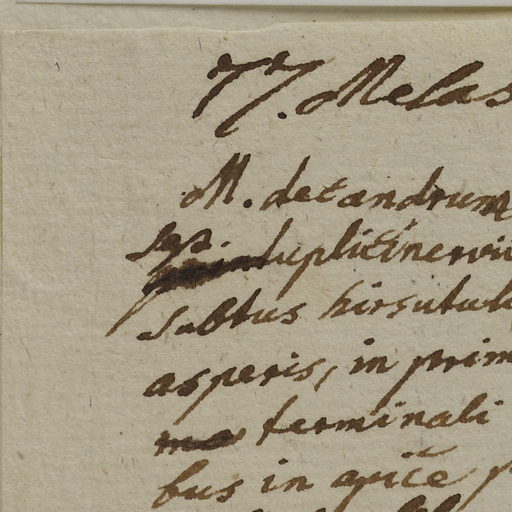 77. Melas
M. decandrum
sep. duplitinervii
subtus hirsutul
asperis, in prim
terminali
bus in apice p